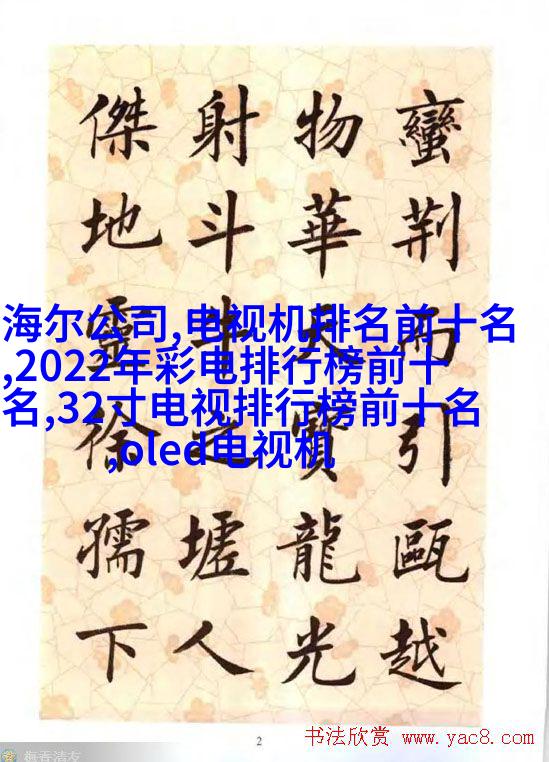 蠻荆而引甌越
物華天寶龍光
射斗牛之墟人
傑地靈徐孺下
海尔公司,电视机排名前十名
,2022年彩电排行榜前十
名,32寸电视排行榜前十名
,oled电视机
2
书法欣赏 www.yac8.com